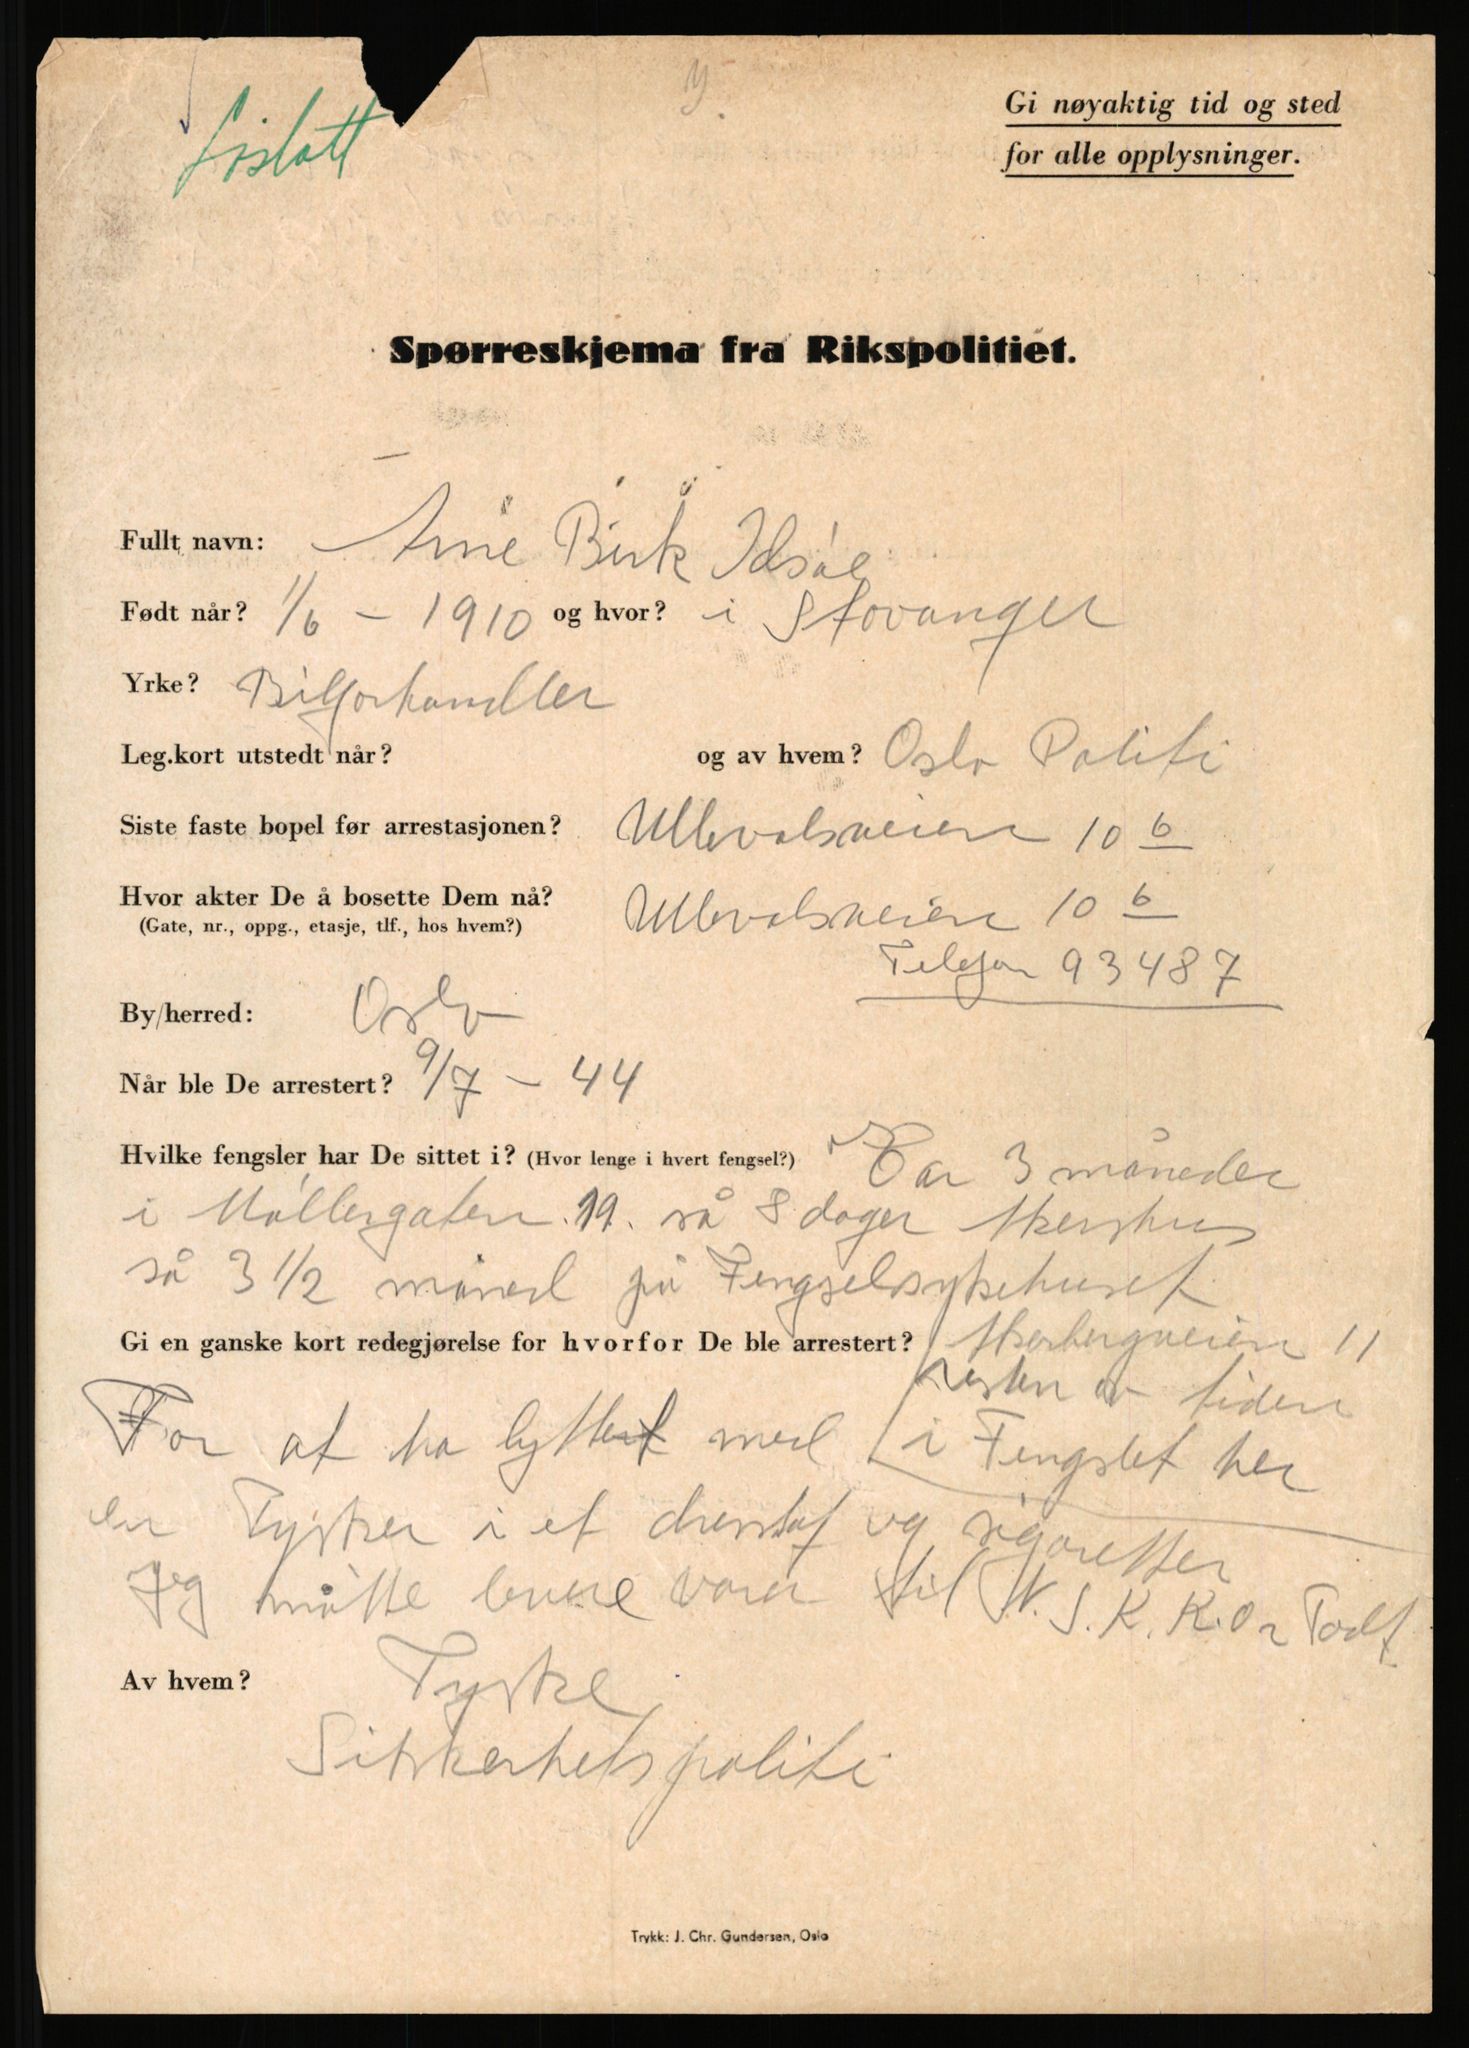 Løslatt
Gi nøyaktig tid og sted
for alle opplysninger.
Spørreskjema fra Rikspolitiet.
Fullt navn: Arne Birk Idsøe
Født når? 1/6 - 1910 og hvor? i Stavanger
Yrke? Bilforhandler
Leg.kort utstedt når? og av hvem? Oslo Politi
Siste faste bopel før arrestasjonen? Ullevalsveien 10 b
Hvor akter De å bosette Dem nå? Ullevalsveien 10 b
(Gate, nr., oppg., etasje, tlf., hos hvem?)
Telefon 93487
By/herred: Oslo
Når ble De arrestert? 9/7 - 44
Hvilke fengsler har De sittet i? (Hvor lenge i hvert fengsel?) Ca 3 måneder
i Møllergaten 19. så 8 dager Akershus
så 3 1/2 måned på Fengselsykehuset
Gi en ganske kort redegjørelse for hvorfor De ble arrestert? Akerbergveien 11
resten av tiden
i Fengslet her
For at ha byttet med
en Tysker i et og sigaretter
Jeg måtte levere varer til N.S.K.K. O. Todt
Av hvem? Tyske
Sikkerhetspoliti
Trykk: J. Chr. Gundersen, Oslo